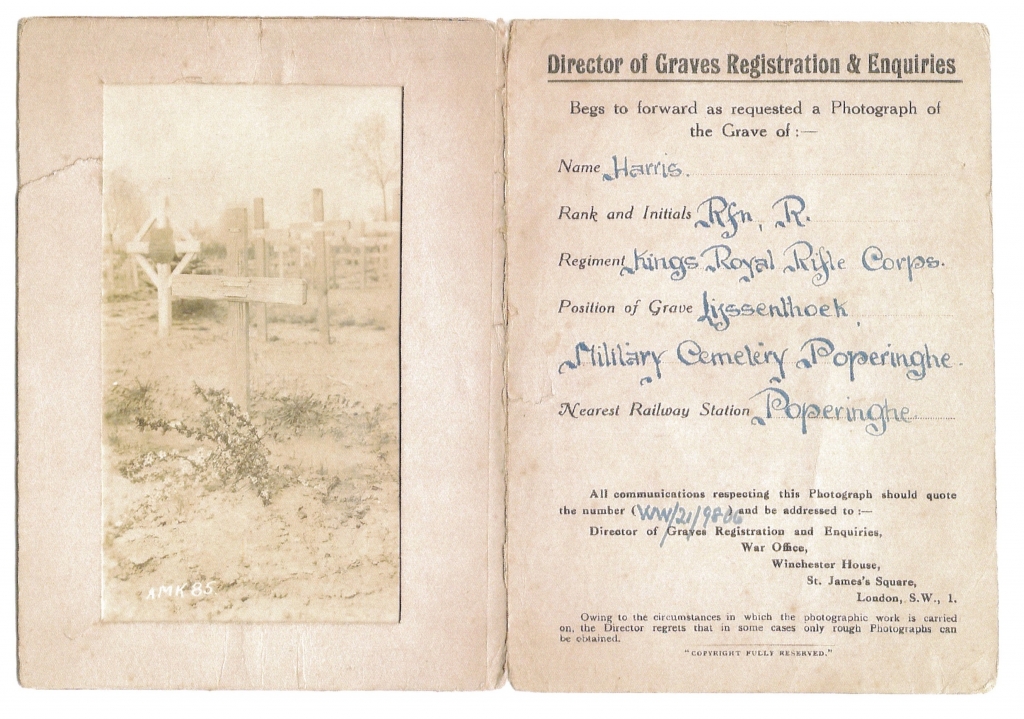 AMK 85
Director of Graves Registration & Enquiries
Begs to forward as requested a Photograph of
the Grave of :—
Name Harris.
Rank and Initials Rfn, R.
Regiment Kings Royal Rifle Corps.
Position of Grave Lijssenthoek,
Military Cemetery Poperinghe.
Nearest Railway Station Poperinghe.
All communications respecting this Photograph should quote
the number (WW/21/9806) and be addressed to :—
Director of Graves Registration and Enquiries,
War Office,
Winchester House,
St. James's Square,
London, S.W., 1.
Owing to the circumstances in which the photographic work is carried
on, the Director regrets that in some cases only rough Photographs can
be obtained.
"COPYRIGHT FULLY RESERVED."